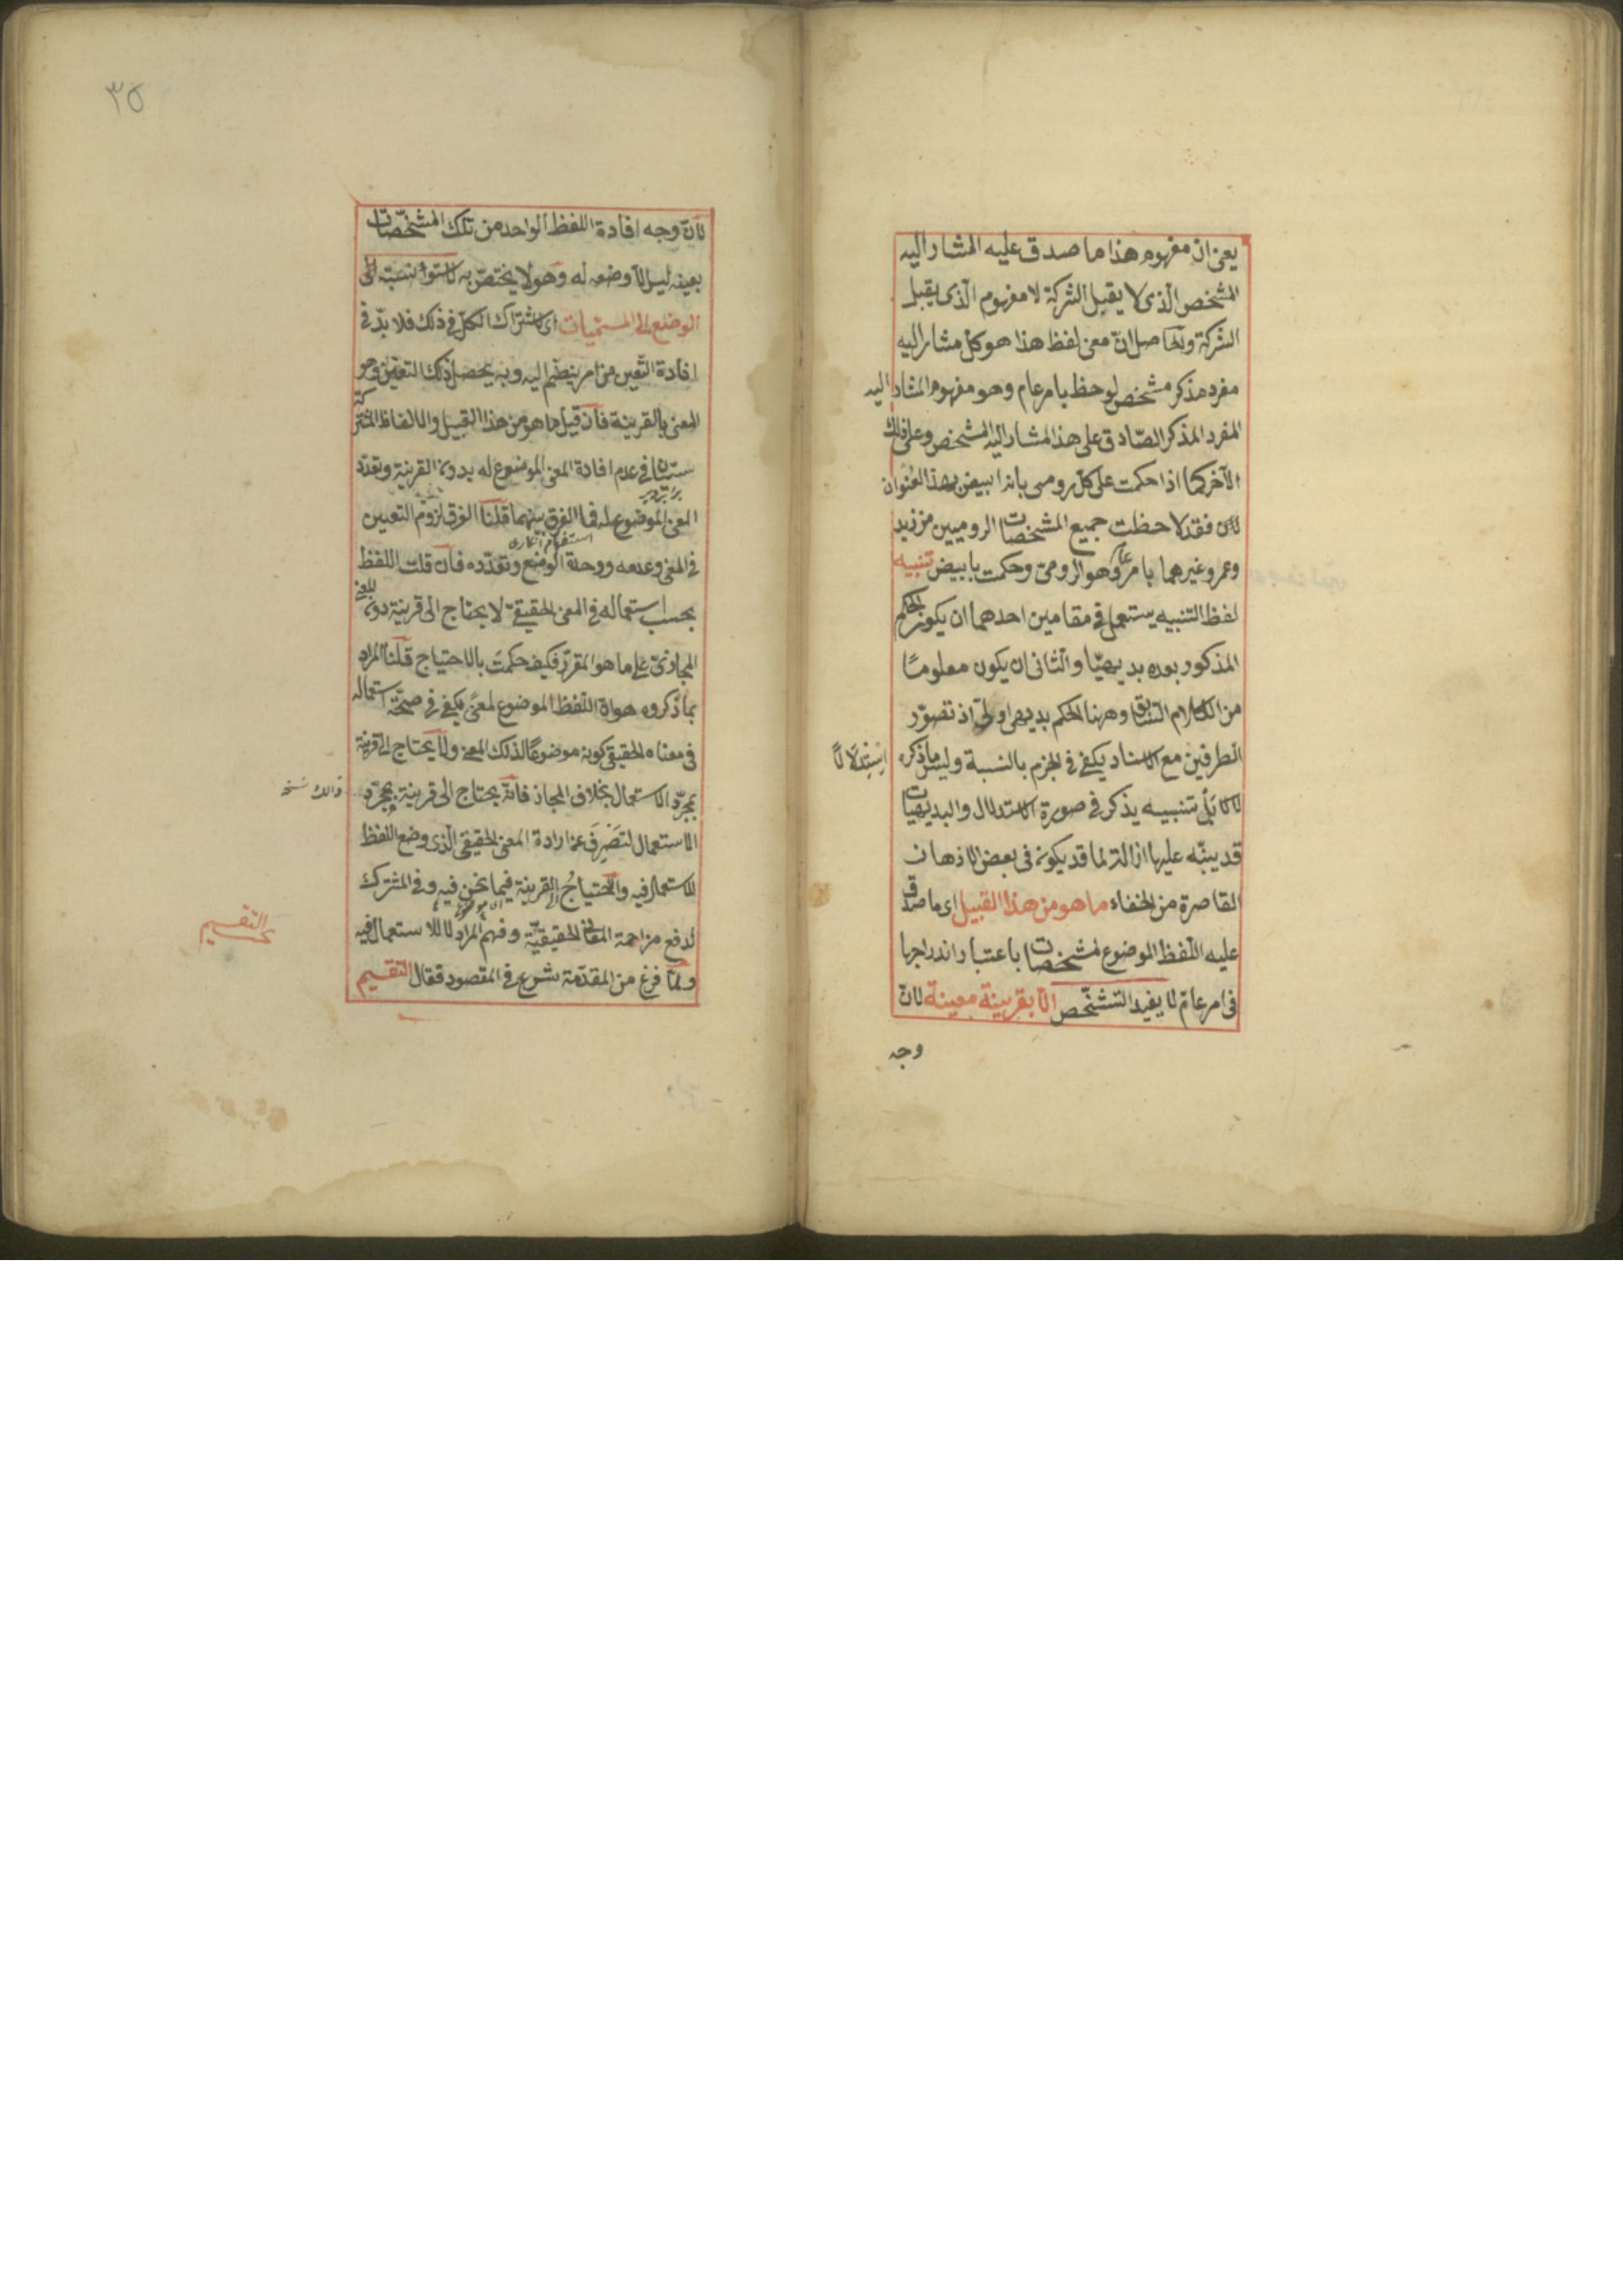 يعنى ان مفهوم هذا ما صدق عليه المشار اليه
المشخص الّذى لا يقبل الشركة لا مفهوم الّذى يقبل
الشركة والحاصل انّ معنى لفظ هذا هو كل مشار اليه
مفرد مذكر مشخص لوحظ بامر عام وهو مفهوم المشار اليه
المفرد المذكر الصّادق على هذا المشار اليه المشخص وعلى ذلك
الآخر كما اذا حكمت على كل رومى بانه ابيض بهذا العنوان
فقد لاحظت جميع المشخصات الروميين من زيد
وعمرو غيرهما بامر عام وهو الرومى وحكمت بابيض تنبيه
لفظ التنبيه يستعمل فى مقامين احدهما ان يكون الحكم
المذكور بعده بديهيّا والثانى ان يكون معلومًا
من الكلام السّابق وههنا الحكم بديهى اولىّ اذ تصوّر
الطرفين مع الاسناد يكفى فى الجزم بالنسبة وليس ما ذكره
استدلالا
لا بل تنبيه يذكر فى صورة الاستدلال والبديهيات
قد ينبّه عليها ازالة لما قد يكون فى بعض الاذهان
القاصرة من الخفاء ما هو من هذا القبيل اى ما صدق
عليه اللّفظ الموضوع لمشخصات باعتبار اندراجها
فى امر عامّ لا يفيد التشخّص الّا بقرينة معينة لانّ
وجه
٣٥
لانّ وجه افادة اللفظ الواحد من تلك المشخّصات
بعينه ليس الّا وضعه له وهو لا يختصّ به لاستواء نسبة
الوضع الى المسمّيات اى لاشتراك الكلّ فى ذلك فلا بدّ فى
افادة التّعين من امر ينضم اليه وبه يحصل ذلك التعيّن وهو
المعنى بالقرينة فان قيل ما هو من هذا القبيل والالفاظ المشتركة
سيّان فى عدم افادة المعنى الموضوع له بدون القرينة وتعدّد
المعنى الموضوع له فما الفرق بينهما قلنا الفرق لزوم التعيين
استفهام انكارى
فى المعنى وعدمه ووحدة الوضع وتعدّده فان قلت اللفظ
بحسب استعماله فى المعنى الحقيقىّ لا يحتاج الى قرينة دون المعنى
المجازىّ على ما هو المقرّر فكيف حكمت بالاحتياج قلنا المراد
بما ذكروه هو انّ اللّفظ الموضوع لمعنًى يكفى فى صحّة استعماله
فى معناه الحقيقى كونه موضوعًا لذلك المعنى ولا يحتاج الى قرينة
بمجرّد الاستعمال بخلاف المجاز فانّه يحتاج الى قرينة بمجرّد
ذالك نسخه
الاستعمال لتصرف عن ارادة المعنى الحقيقى الّذى وضع اللفظ
للاستعمال فيه والاحتياجُ الى القرينة فيما نحن فيه وفى المشترك
لدفع مزاحمة المعانى الحقيقيّة وفهم المراد لا للاستعمال فيه
ولمّا فرغ من المقدّمة شرع فى المقصود فقال التقسيم
التقسيم